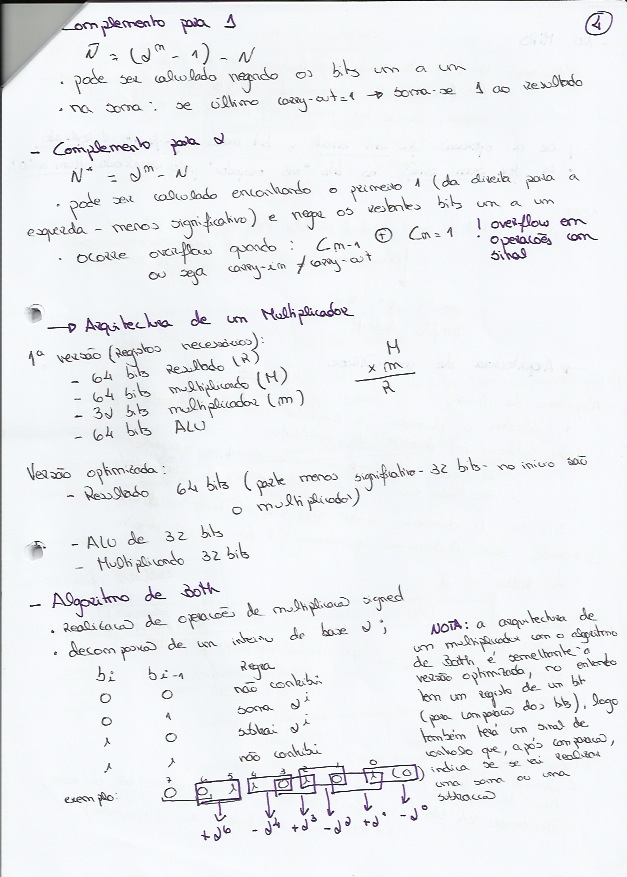 ④
Complemento para 1
N̄ = (2ⁿ - 1) - N
• pode ser calculado negando os bits um a um
• na soma: se último carry-out=1 → soma-se 1 ao resultado
- Complemento para 2
N* = 2ⁿ - N
• pode ser calculado encontrando o primeiro 1 (da direita para a
esquerda - menos significativo) e negar os restantes bits um a um
• ocorre overflow quando: Cn-1 ⊕ Cn = 1
ou seja carry-in ≠ carry-out
! overflow em
operações com
sinal
→ Arquitectura de um Multiplicador
1ª versão (Registos necessários):
- 64 bits Resultado (R)
- 64 bits multiplicando (M)
- 32 bits multiplicador (m)
- 64 bits ALU
M
x m
R
Versão optimizada:
- Resultado 64 bits (parte menos significativa - 32 bits - no inicio são
o multiplicador)
- ALU de 32 bits
- Multiplicando 32 bits
- Algoritmo de Both
• Realizaca de operações de multiplicaca signed
• decomposica de um inteiro de base 2;
bi bi-1 Regra
0 0 não contribui
0 1 soma 2ⁱ
1 0 subtrai 2ⁱ
1 1 não contribui
NOTA: a arquitectura de
um multiplicador com o algoritmo
de Both é semelhante a
versão optimizada, no entanto
tem um registo de um bit
(para comparaca dos bits), logo
também terá um sinal de
controlo que, após comparaca,
indica se se vai realizar
uma soma ou uma
subtracca
7 6 5 4 3 2 1 0
exemplo: 0 0 1 1 0 1 0 1 (0)
+2⁶ -2⁴ +2³ -2² +2¹ -2⁰